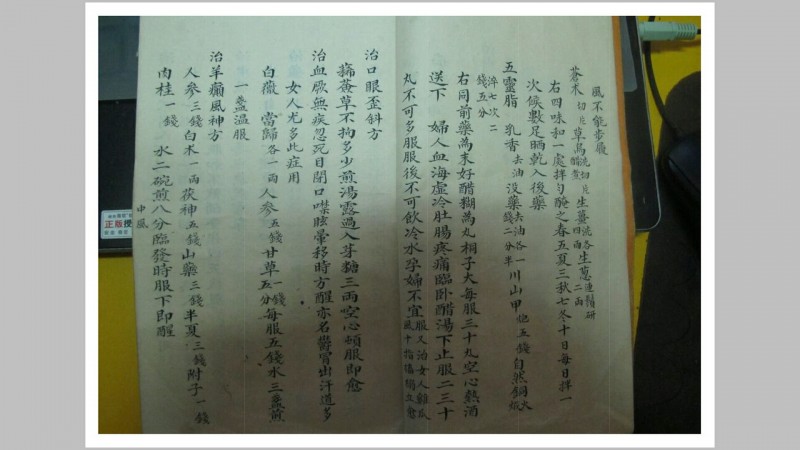 風不能步履
蒼朮切片 草烏醋煮洗切片 生薑洗各四兩 生蔥連鬚研二兩
右四味和一處拌勻醃之春五夏三秋七冬十日每日拌一
次候數足晒乾入後藥
五靈脂 乳香去油 没藥去油各一錢二分半 川山甲炮五錢 自然銅火煅
淬七次二錢五分
右同前藥為末好醋糊為丸桐子大每服三十丸空心熱酒
送下 婦人血海虛冷肚腸疼痛臨卧醋湯下止服二三十
丸不可多服服後不可飲冷水孕婦不宜服又治女人
治口眼歪斜方
蘇黃草不拘多少煎湯露過入芽糖三兩空心頓服即愈
治血厥無疾忽死目閉口噤眩暈移時方醒亦名鬱冒出汗過多
女人尤多此症用
白薇 當歸各一兩 人參五錢 甘草一錢五分 每服五錢水三盞煎
一盞温服
治羊癲風神方
人參三錢 白朮一兩 茯神五錢 山藥三錢 半夏三錢 附子一錢
肉桂一錢 水二碗煎八分臨發時服下即醒
中風
正版授